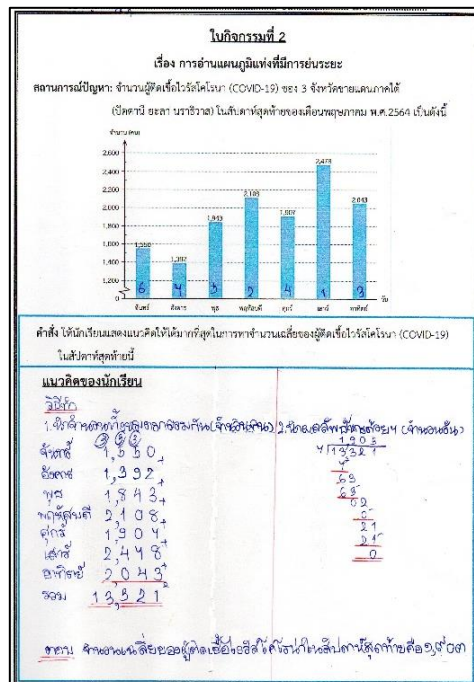 ใบกิจกรรมที่ 2
เรื่อง การอ่านแผนภูมิแท่งที่มีการย่นระยะ
สถานการณ์ปัญหา: จำนวนผู้ติดเชื้อไวรัสโคโรนา (COVID-19) ของ 3 จังหวัดชายแดนภาคใต้
(ปัตตานี ยะลา นราธิวาส) ในสัปดาห์สุดท้ายของเดือนพฤษภาคม พ.ศ.2564 เป็นดังนี้
จำนวน (คน)
2,600
2,400
2,200
2,000
1,800
1,600
1,400
1,200
1,000
0
1,550
1,392
1,843
2,108
1,907
2,478
2,043
6 4 5 2 4 1 3
จันทร์ อังคาร พุธ พฤหัสบดี ศุกร์ เสาร์ อาทิตย์
วัน
คำสั่ง ให้นักเรียนแสดงแนวคิดให้ได้มากที่สุดในการหาจำนวนเฉลี่ยของผู้ติดเชื้อไวรัสโคโรนา (COVID-19)
ในสัปดาห์สุดท้ายนี้
แนวคิดของนักเรียน
วิธีทำ
จันทร์ 1,550
อังคาร 1,392
พุธ 1,843
พฤหัสบดี 2,108
ศุกร์ 1,907
เสาร์ 2,478
อาทิตย์ 2,043
รวม 13,321
1,903
7 13,321
7
63
63
02
0
21
21
0
ตอบ จำนวนเฉลี่ยของผู้ติดเชื้อไวรัสโคโรน่าในสัปดาห์สุดท้ายคือ ๑,๙๐๓